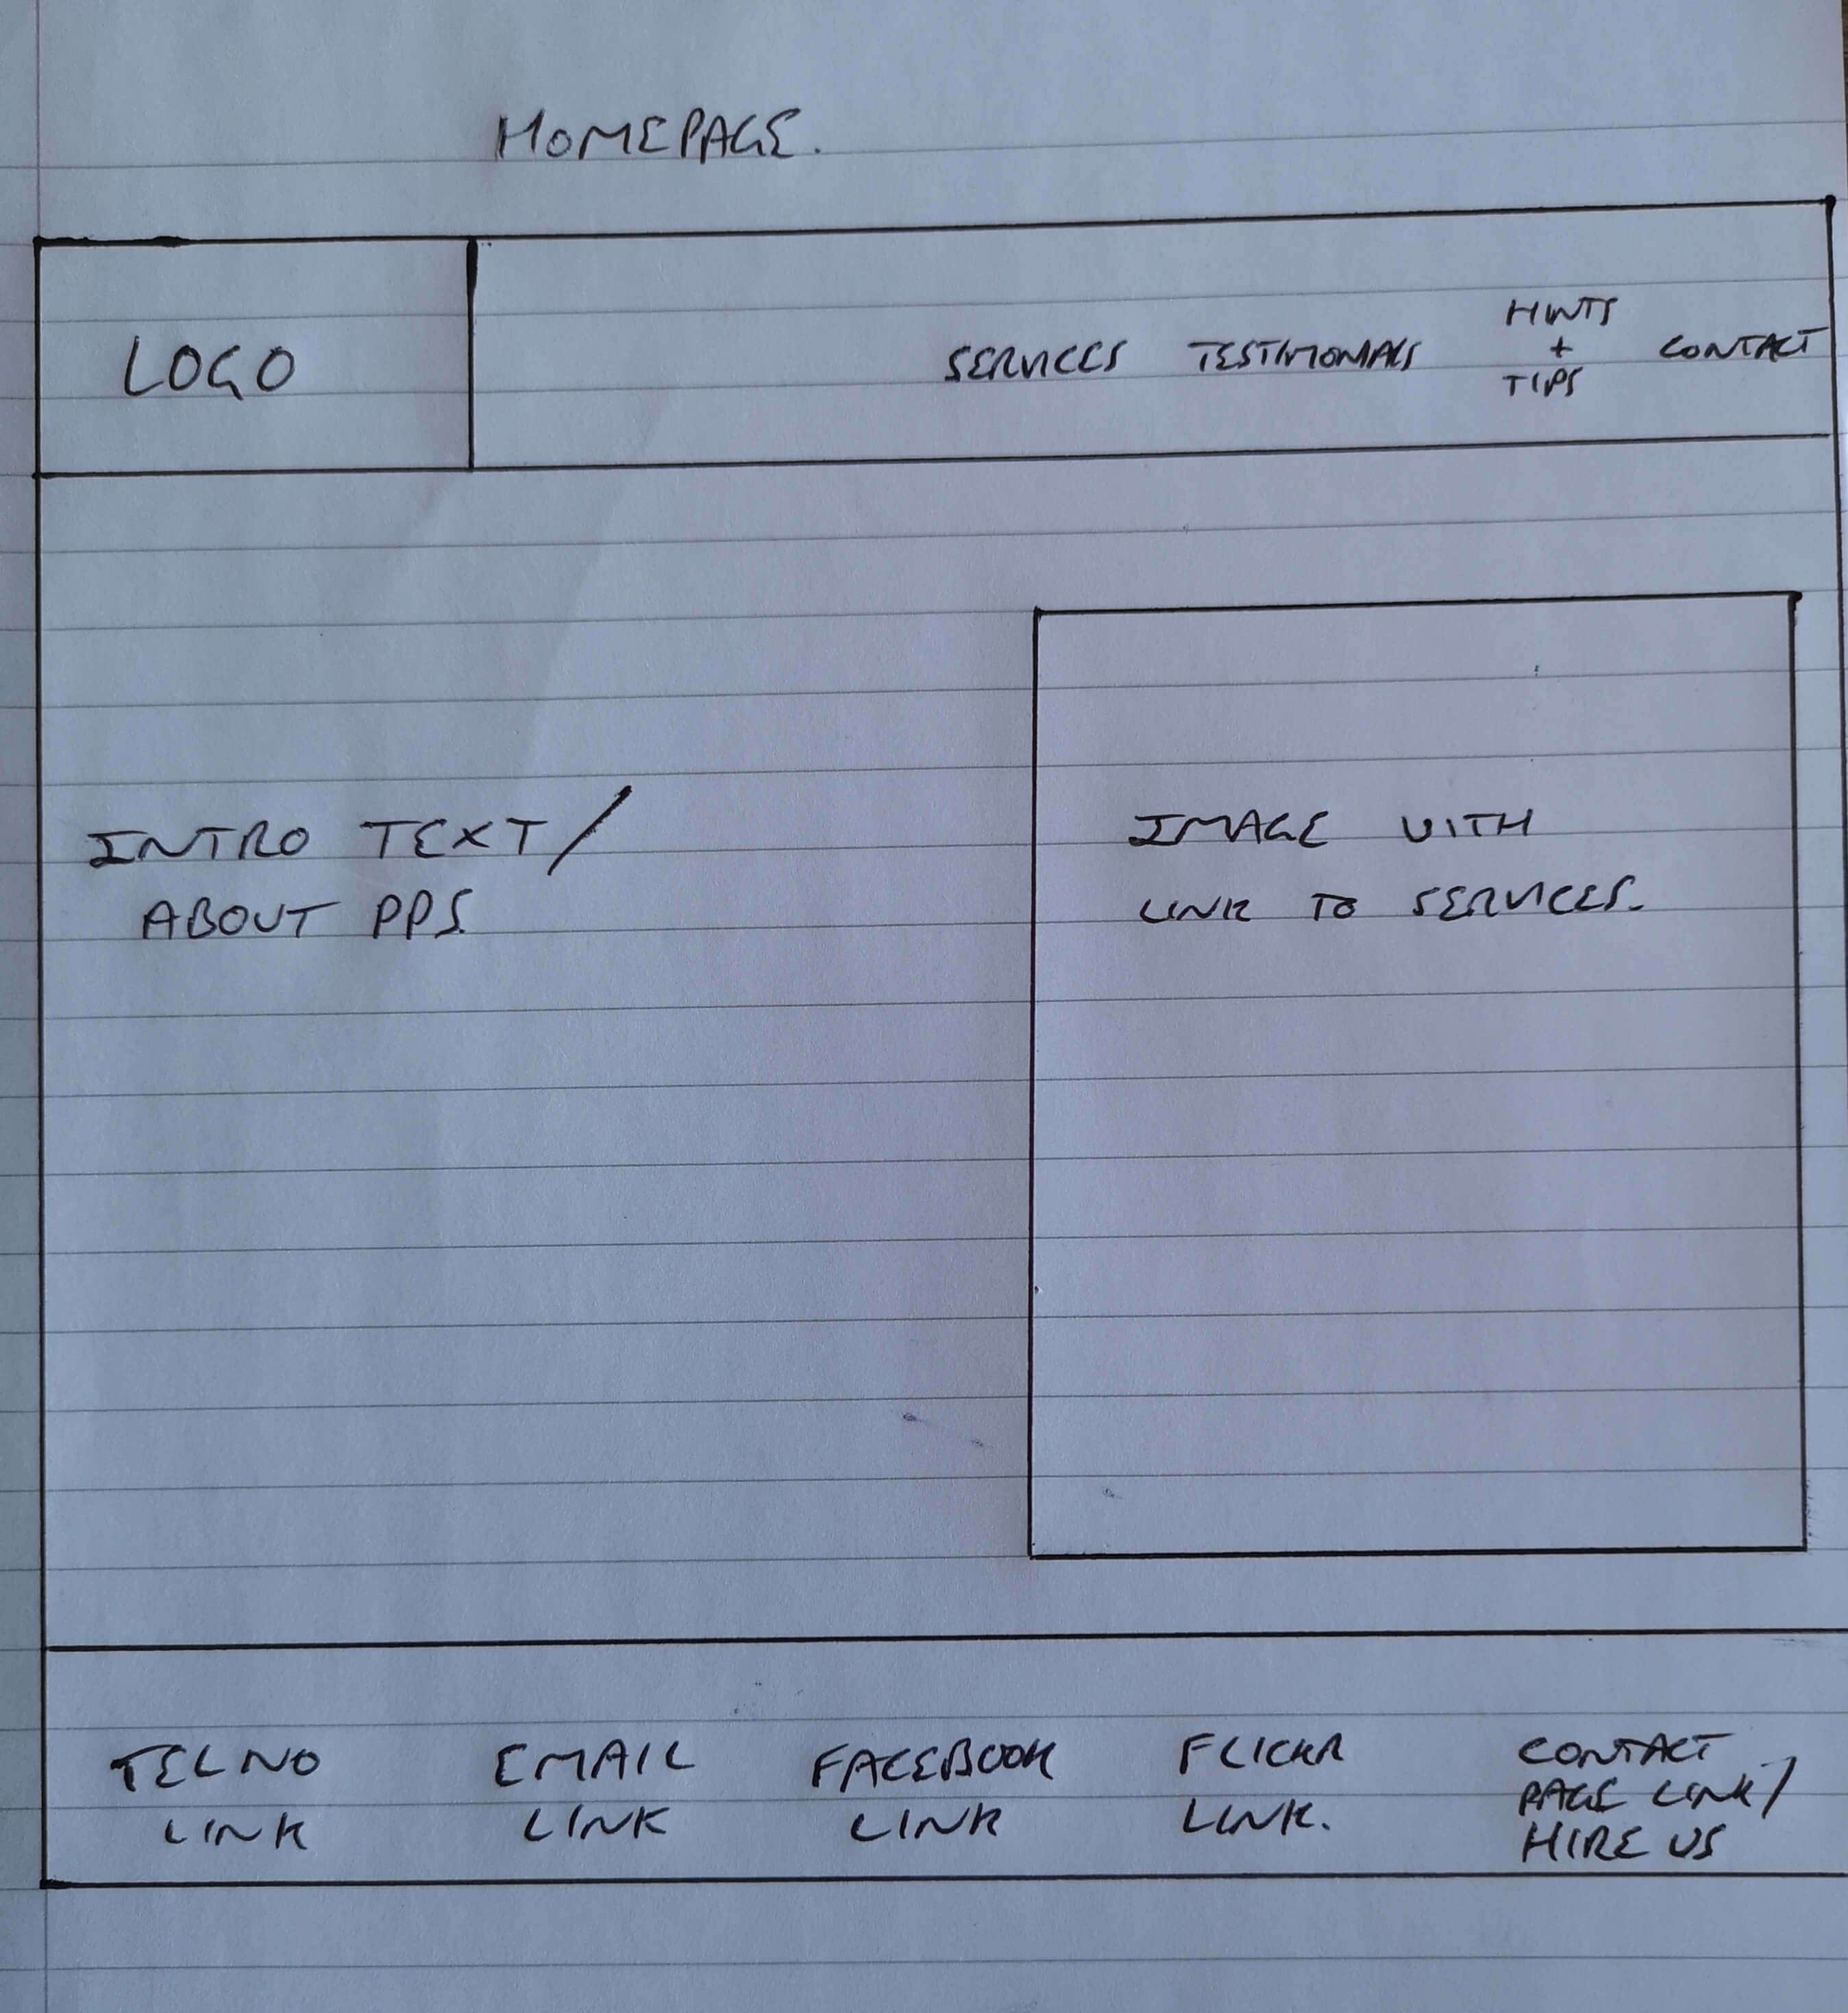 HOMEPAGE.
LOGO
SERVICES TESTIMONIALS HINTS + TIPS CONTACT
INTRO TEXT/
ABOUT PPS.
IMAGE WITH
LINK TO SERVICES.
TEL NO
LINK
EMAIL
LINK
FACEBOOK
LINK
FLICKR
LINK.
CONTACT
PAGE LINK/
HIRE US